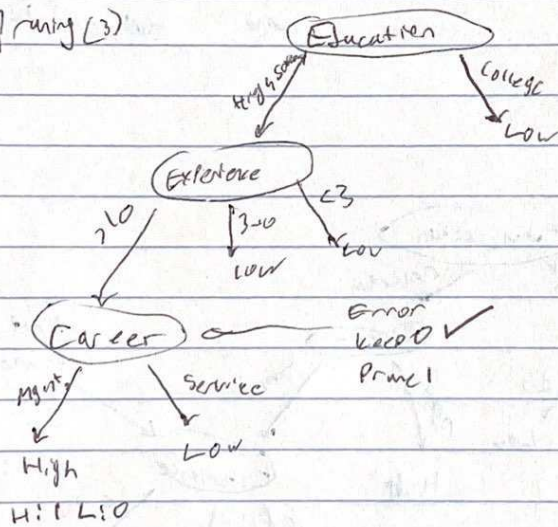 Pruning (3)
Education
High School
College
LOW
Experience
>10
3-10
<3
LOW
LOW
Career
Error
Keep 0 ✓
Prune 1
Mgmt.
Service
High
LOW
H:1 L:0